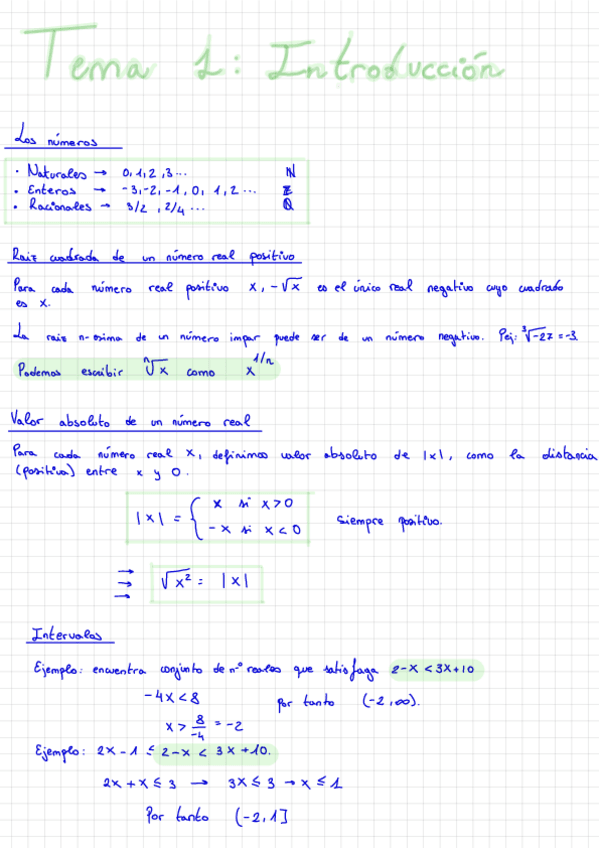 Tema 1: Introducción
Los números
· Naturales → 0,1,2,3... ℕ
· Enteros → -3,-2,-1,0,1,2... ℤ
· Racionales → 3/2, 2/4... ℚ
Raiz cuadrada de un número real positivo
Para cada número real positivo x, -√x es el único real negativo cuyo cuadrado
es x.
La raiz n-esima de un número impar puede ser de un número negativo. Pej: ³√-27 = -3.
Podemos escribir ⁿ√x como x^1/n
Valor absoluto de un número real
Para cada número real x, definimos valor absoluto de |x|, como la distancia
(positiva) entre x y 0.
|x| = { x si x>0
-x si x<0
siempre positivo.
→
→ √x² = |x|
→
Intervalos
Ejemplo: encuentra conjunto de nº reales que satisfaga 2-x < 3x+10
-4x<8 por tanto (-2,∞).
x > 8/-4 = -2
Ejemplo: 2x-1 ≤ 2-x < 3x+10.
2x+x ≤ 3 → 3x ≤ 3 → x ≤ 1
Por tanto (-2,1]